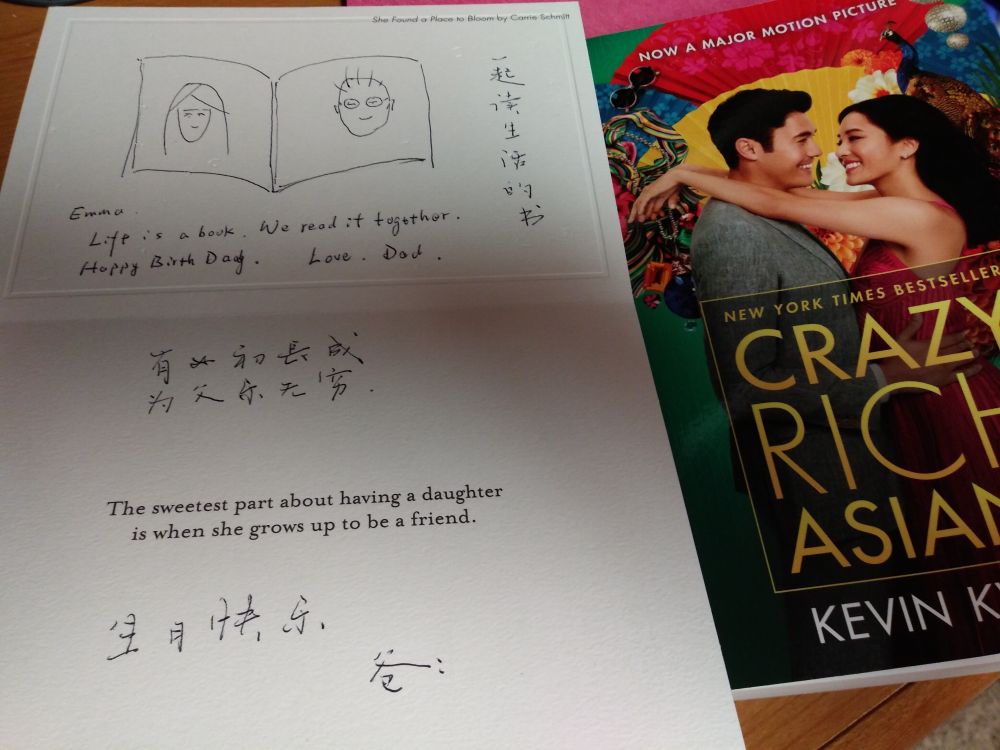 She Found a Place to Bloom by Carrie Schmitt
一起读生活的书
Emma.
Life is a book. We read it together.
Happy Birth Day. Love. Dad.
有女初長成
为父乐无穷.
The sweetest part about having a daughter
is when she grows up to be a friend.
生日快乐.
爸:
NOW A MAJOR MOTION PICTURE
NEW YORK TIMES BESTSELLER
CRAZY
RICH
ASIAN
KEVIN K